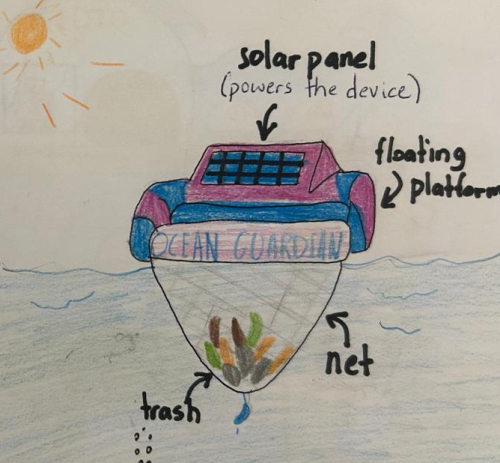 solar panel
(powers the device)
floating
platform
OCEAN GUARDIAN
net
trash